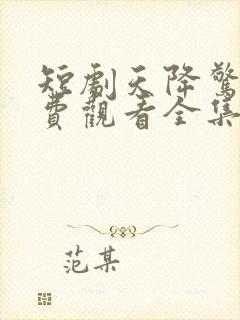 短劇天降驚
費觀看全集
范某